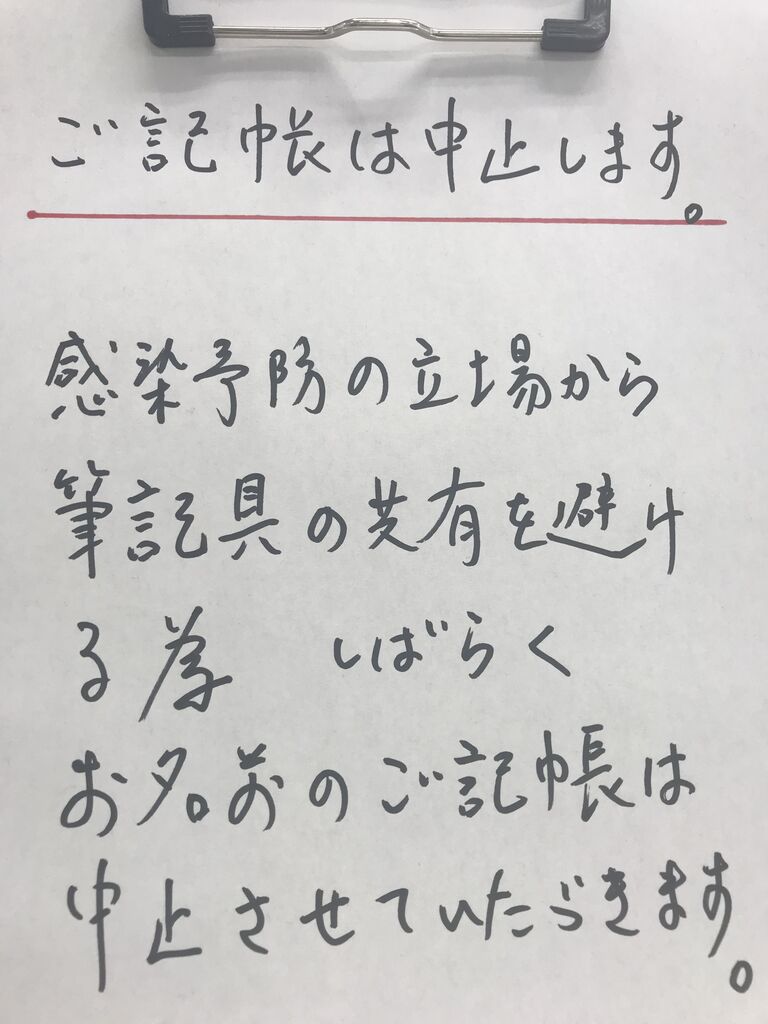 ご記帳は中止します。
感染予防の立場から
筆記具の共有を避け
る為 しばらく
お名前のご記帳は
中止させていたゞきます。